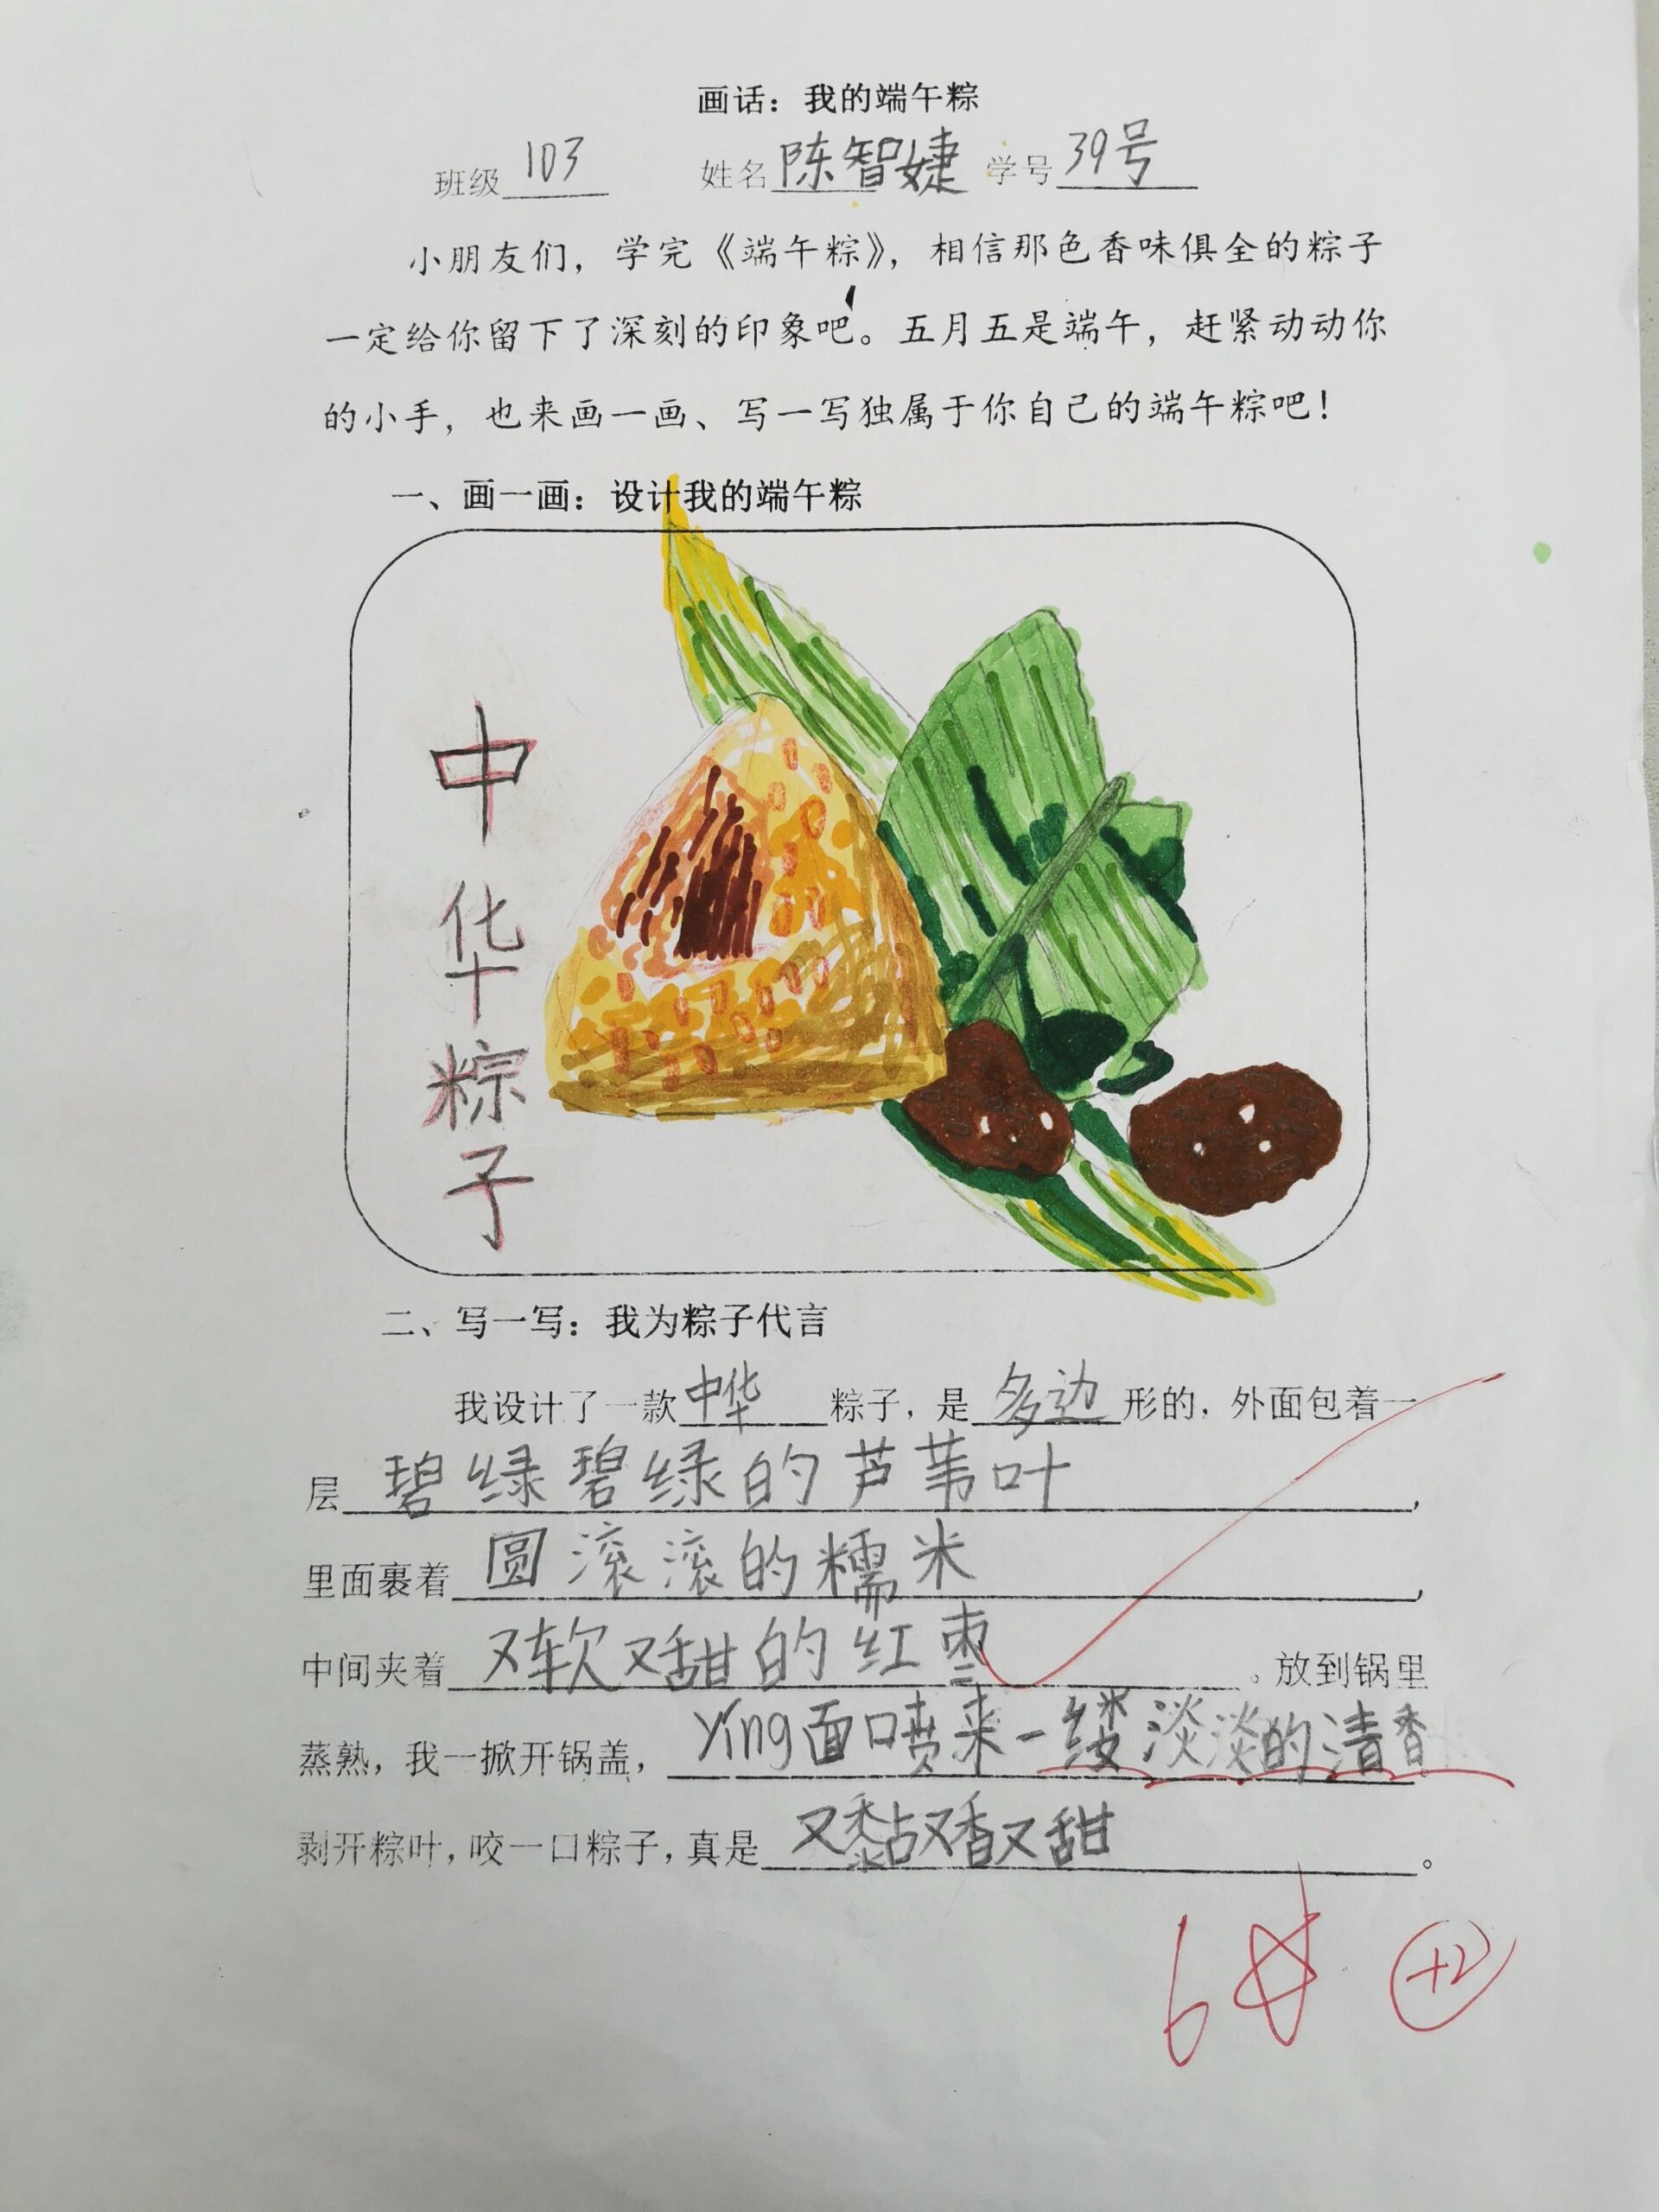 画话：我的端午粽
班级 103 姓名 陈智婕 学号 39号
小朋友们，学完《端午粽》，相信那色香味俱全的粽子
一定给你留下了深刻的印象吧。五月五是端午，赶紧动动你
的小手，也来画一画、写一写独属于你自己的端午粽吧！
一、画一画：设计我的端午粽
中华粽子
二、写一写：我为粽子代言
我设计了一款中华粽子，是多边形的，外面包着一
层碧绿碧绿的芦苇叶，
里面裹着圆滚滚的糯米，
中间夹着又软又甜的红枣。放到锅里
蒸熟，我一掀开锅盖，yíng面喷来一缕淡淡的清香
剥开粽叶，咬一口粽子，真是又黏又香又甜。
6☆ +2